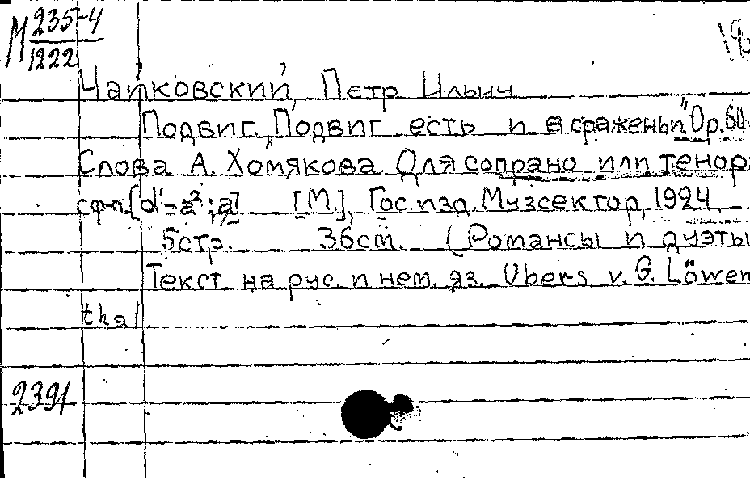 М 235-4
1222
Чайковский, Петр Ильич
Подвиг. "Подвиг есть и в сраженьи" Op. 60
Слова А. Хомякова Для сопрано или тенора
с ф-п. [d'-a²; a] [М.], Гос. изд. Музсектор, 1924
5 стр. 36 см. (Романсы и дуэты
Текст на рус. и нем. яз. Ubers v. G. Löwen
thal
2391